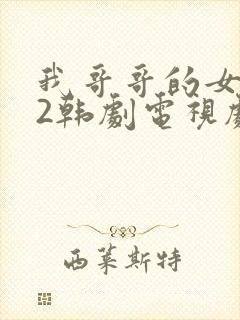 我哥哥的女
2韩劇電視劇
西莱斯特